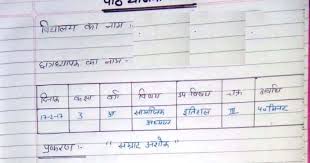 पाठ योजना
विद्यालय का नाम :-
छात्राध्यापक का नाम :-
दिनांक कक्षा वर्ग विषय उप विषय चक्र अवधि
17-2-17 3 अ सामाजिक अध्ययन इतिहास III 40 मिनट
प्रकरण :- " सम्राट अशोक "